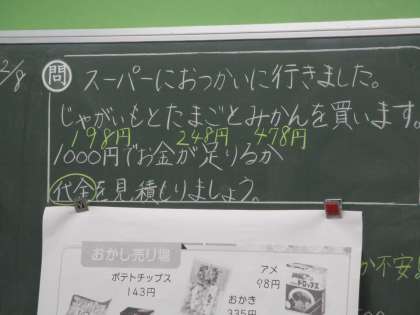 2/8
問 スーパーにおつかいに行きました。
じゃがいもとたまごとみかんを買います。
198円 248円 478円
1000円でお金が足りるか
代金を見積もりましょう。
か不安
おかし売り場
ポテトチップス
143円
アメ
98円
おかき
335円
ドロップス